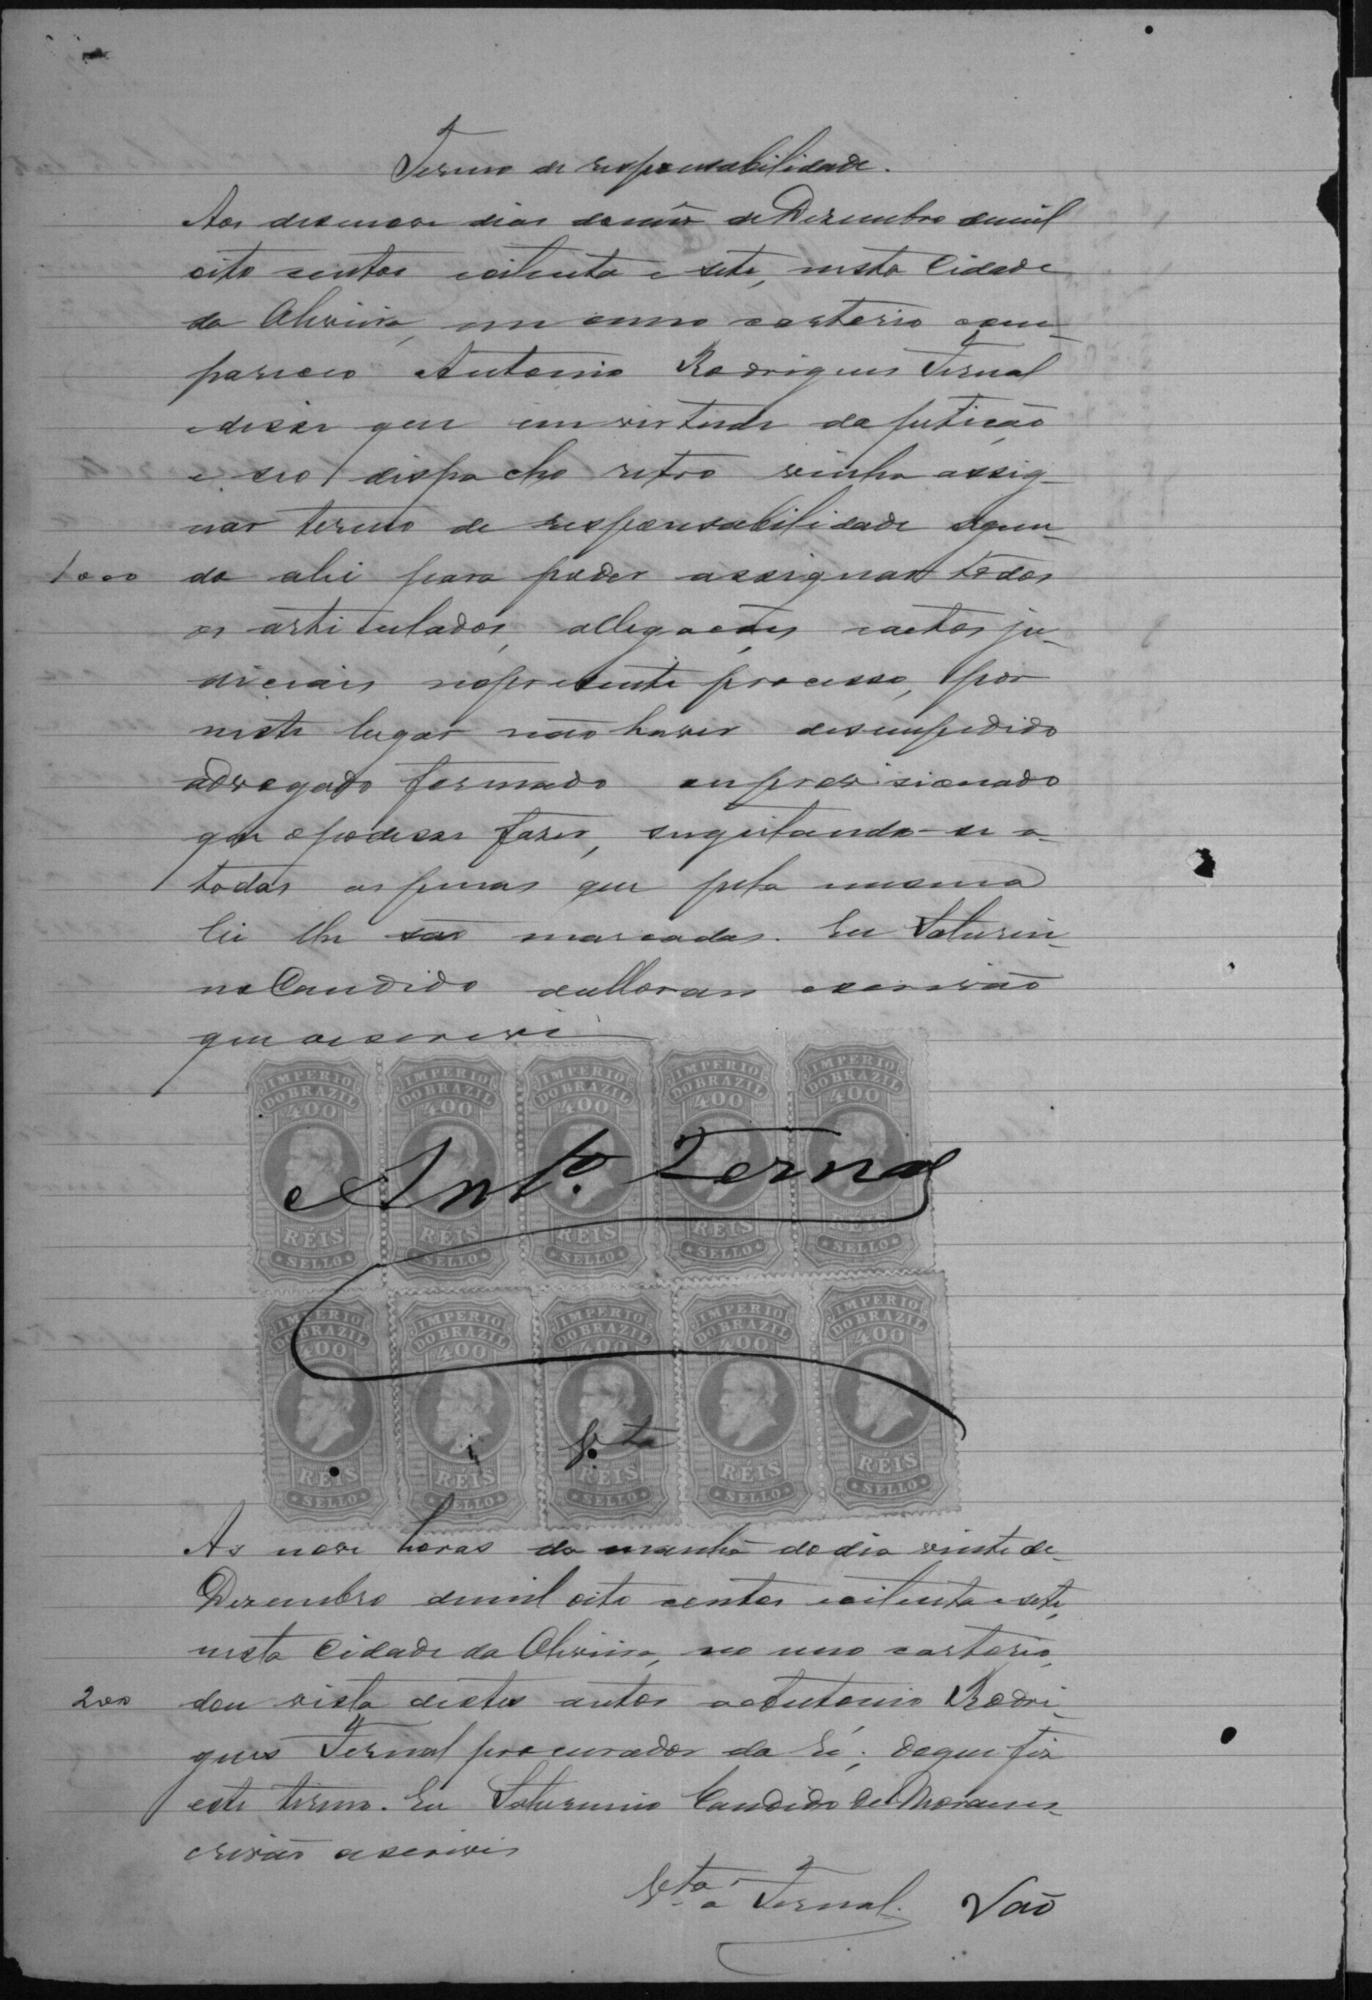 Termo de responsabilidade.
Aos desenove dias do mês de Dezembro de mil
oito centos e oitenta e sete, nesta Cidade
da Oliveira, em meu cartorio com-
pareceo Antonio Rodrigues Ternal
e disse que em virtude da petição
e seo dispacho retro vinha assig-
nar termo de responsabilidade
1000 do ahi para poder assignar todos
os articulados, allegações e actos ju-
diciais no presente processo, por
neste lugar não haver desempedido
advogado formado ou provisionado
que o podesse fazer, sugeitando-se a
todas as penas que pela mesma
lei lhe são marcadas. Eu Saturni-
no Candido de Moraes escrivão
que o escrevi
IMPERIO DO BRAZIL 400 RÉIS SELLO
IMPERIO DO BRAZIL 400 RÉIS SELLO
IMPERIO DO BRAZIL 400 RÉIS SELLO
IMPERIO DO BRAZIL 400 RÉIS SELLO
IMPERIO DO BRAZIL 400 RÉIS SELLO
Anto. Ternal
IMPERIO DO BRAZIL 400 RÉIS SELLO
IMPERIO DO BRAZIL 400 RÉIS SELLO
IMPERIO DO BRAZIL 400 RÉIS SELLO
IMPERIO DO BRAZIL 400 RÉIS SELLO
IMPERIO DO BRAZIL 400 RÉIS SELLO
Vta
As nove horas da manhã do dia vinte de
Dezembro de mil oito centos e oitenta e sete,
nesta Cidade da Oliveira, no meo cartorio,
200 dou vista destes autos a Antonio Rodri-
gues Ternal procurador da Ré; do que fiz
este termo. Eu Saturnino Candido de Moraes es-
crivão a escrivi
Vta a Ternal. Vão